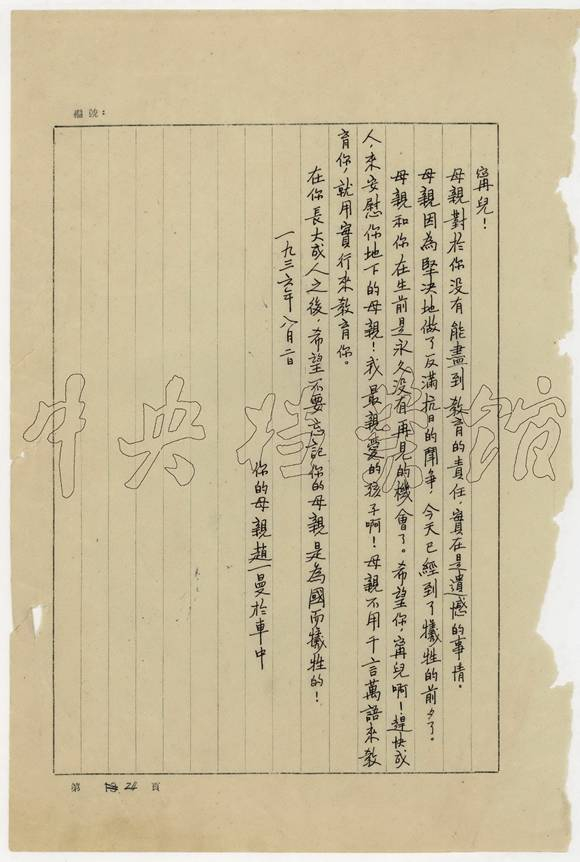 編號：
甯兒！
母親對於你没有能盡到教育的責任，實在是遺憾的事情。
母親因為堅决地做了反滿抗日的鬪争，今天已經到了犧牲的前夕了。
母親和你在生前是永久没有再見的機會了。希望你，甯兒啊！趕快成
人，來安慰你地下的母親！我最親愛的孩子啊！母親不用千言萬語來教
育你，就用實行來教育你。
在你長大成人之後，希望不要忘記你的母親是為國而犧牲的！
一九三六年八月二日
你的母親趙一曼於車中
第 24 頁
中央檔案館